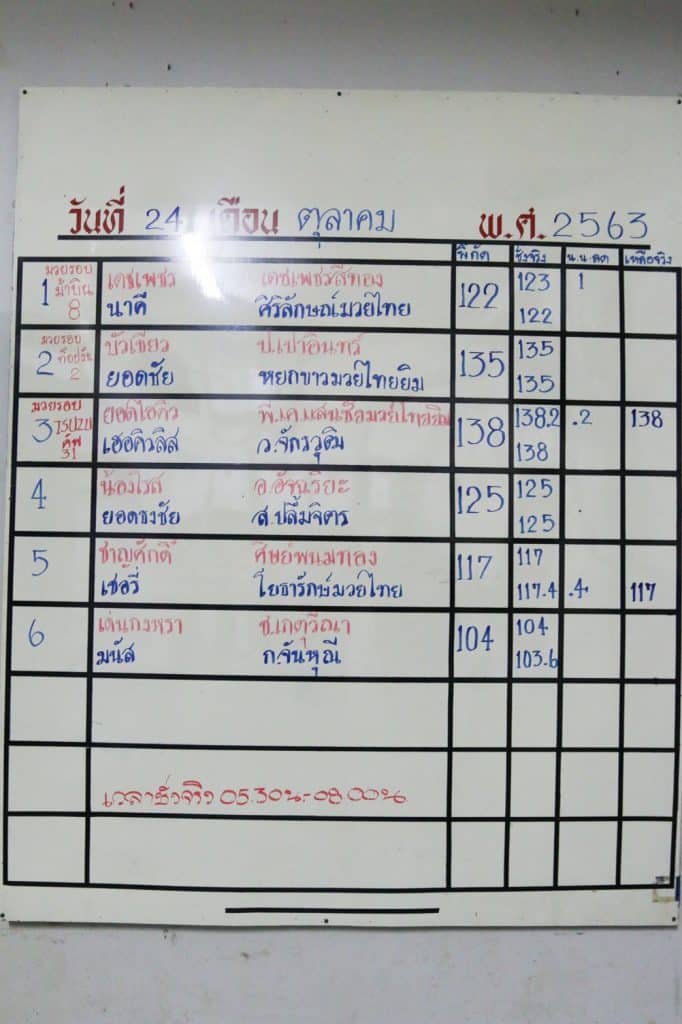 วันที่ 24 เดือน ตุลาคม พ.ศ. 2563
พิกัด ชั่งจริง น.น.ลด เหลือจริง
1 มวยรอบ ม้าบิน 8 เดชเพชร เดชเพชรศรีทอง 122 123 1
นาคี ศิริลักษณ์มวยไทย 122
2 มวยรอบ 2 บัวเขียว ป.เปาอินทร์ 135 135
ยอดชัย หยกขาวมวยไทยยิม 135
3 มวยรอบ 31 ยอดไอคิว พี.เค.แสนชัยมวยไทยยิม 138 138.2 .2 138
เฮอคิวลิส ว.จักรวุฒิ 138
4 น้องโรส อ.อัจฉริยะ 125 125
ยอดธงชัย ส.ปลื้มจิตร 125
5 ชาญศักดิ์ ศิษย์พนมทอง 117 117
เชอรี่ โยธารักษ์มวยไทย 117.4 .4 117
6 เด่นกงหรา ช.เกตุวีณา 104 104
มนัส ก.จันหุณี 103.6
เวลาชั่งจริง 05.30น-08.00น